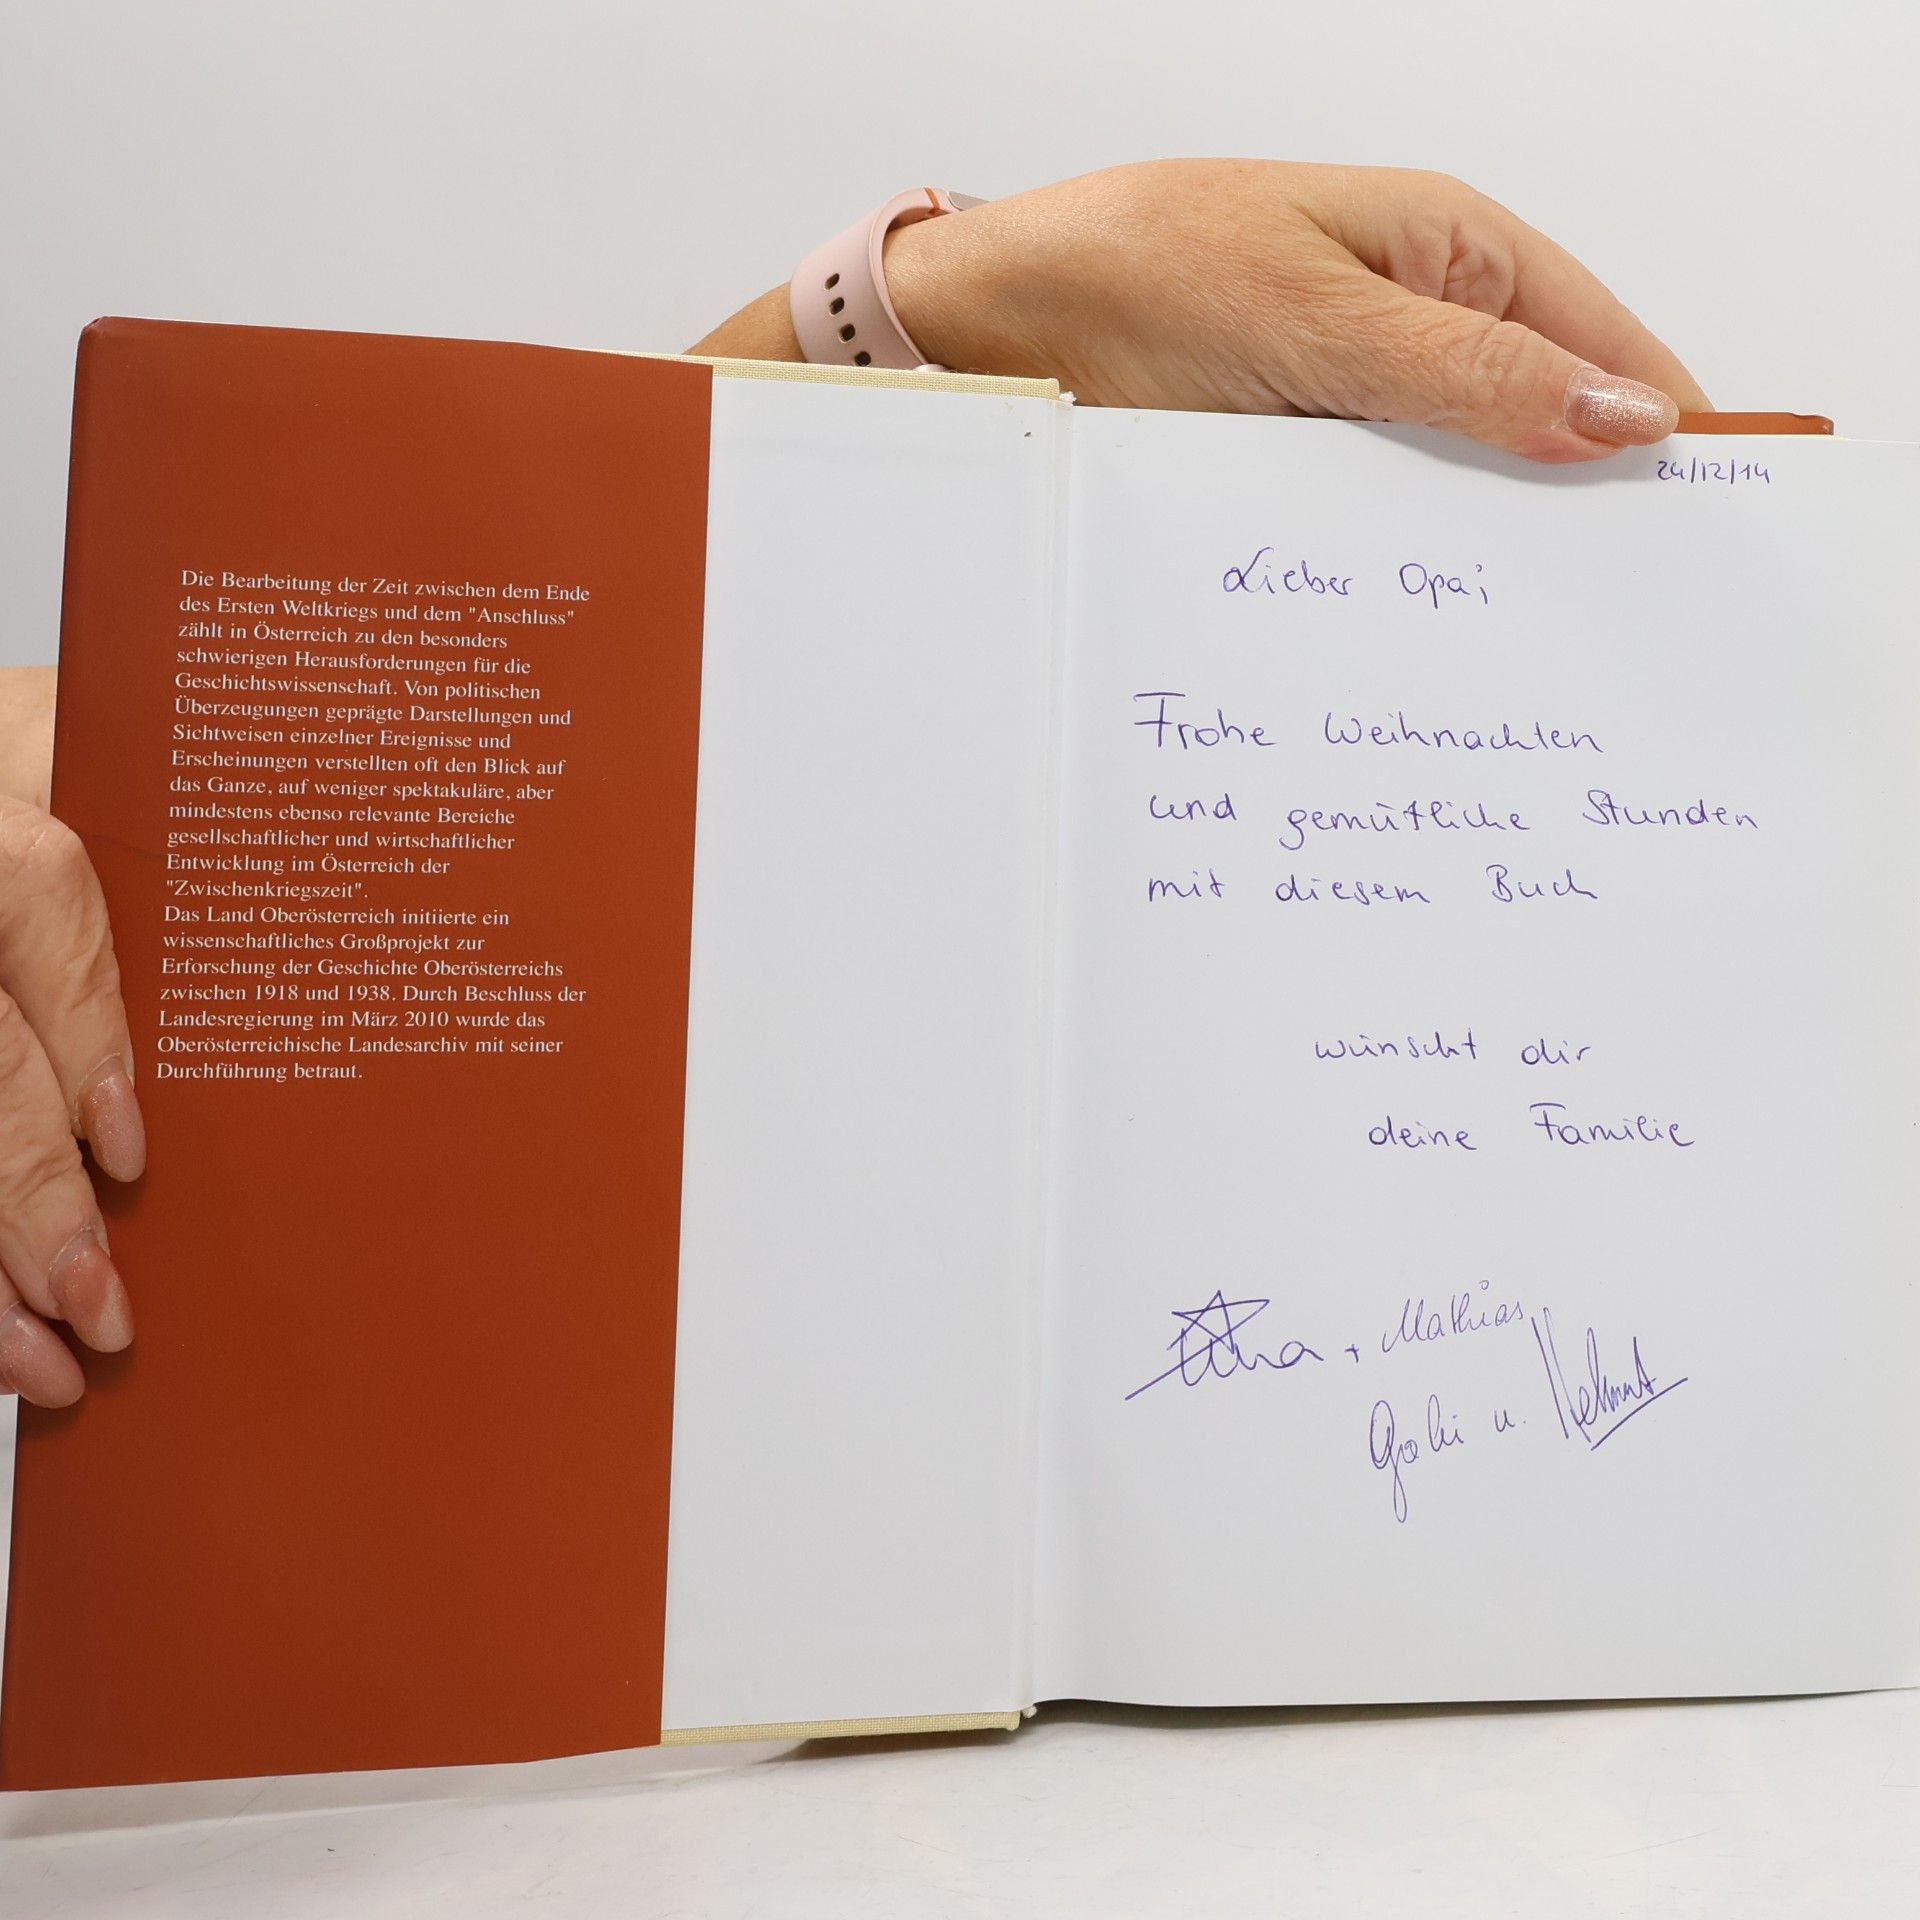 Die Bearbeitung der Zeit zwischen dem Ende
des Ersten Weltkriegs und dem "Anschluss"
zählt in Österreich zu den besonders
schwierigen Herausforderungen für die
Geschichtswissenschaft. Von politischen
Überzeugungen geprägte Darstellungen und
Sichtweisen einzelner Ereignisse und
Erscheinungen verstellten oft den Blick auf
das Ganze, auf weniger spektakuläre, aber
mindestens ebenso relevante Bereiche
gesellschaftlicher und wirtschaftlicher
Entwicklung im Österreich der
"Zwischenkriegszeit".
Das Land Oberösterreich initiierte ein
wissenschaftliches Großprojekt zur
Erforschung der Geschichte Oberösterreichs
zwischen 1918 und 1938. Durch Beschluss der
Landesregierung im März 2010 wurde das
Oberösterreichische Landesarchiv mit seiner
Durchführung betraut.
24/12/14
Lieber Opa;
Frohe Weihnachten
und gemütliche Stunden
mit diesem Buch
wünscht dir
deine Familie
+ Mathias
Gabi u. Helmut